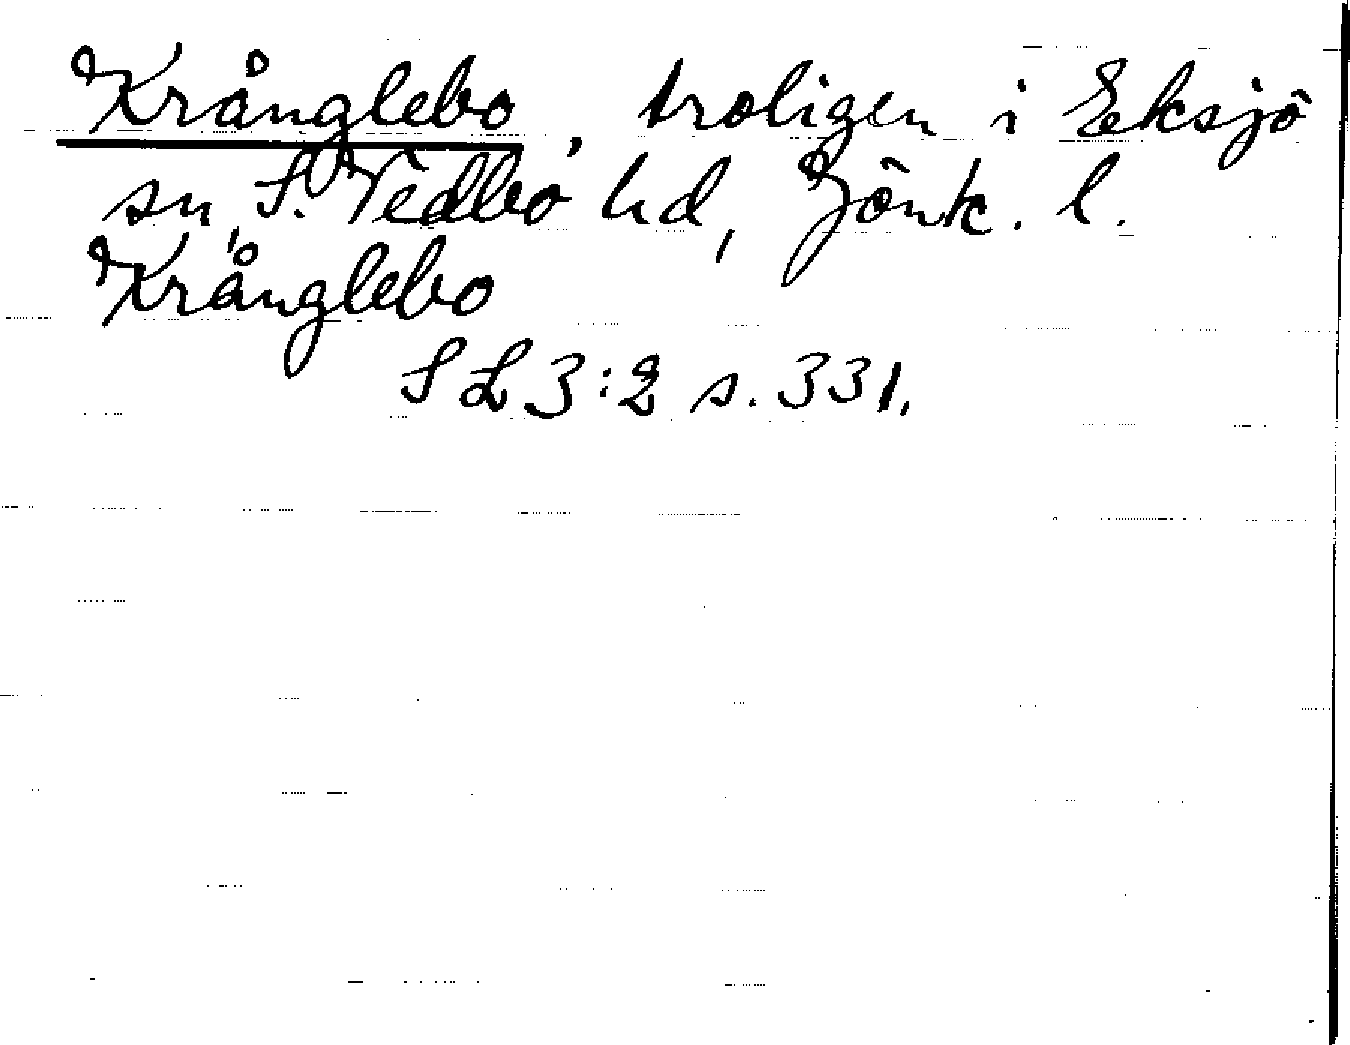 Krånglebo, troligen i Eksjö
sn, S. Vedbo hd, Jönk. l.
Krånglebo
SL 3:2 s. 331.